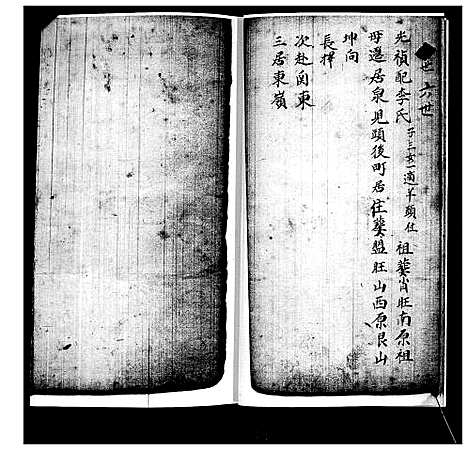 六世
光禎配李氏 子三女一適羊頭仕 祖塋肖旺南原祖
母遷居泉見頭後町居住塋盤旺山西原艮山
坤向
長擇
次赴関東
三居東嶺